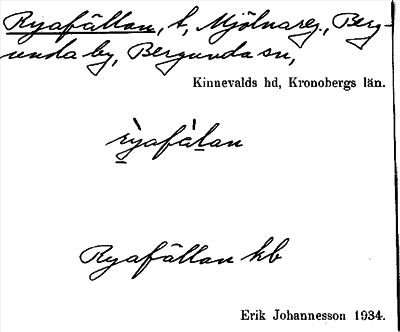 Ryafällan, t, Mjölnareg., Berg-
unda by, Bergunda sn,
Kinnevalds hd, Kronobergs län.
ryafälan
Ryafällan kb
Erik Johannesson 1934.